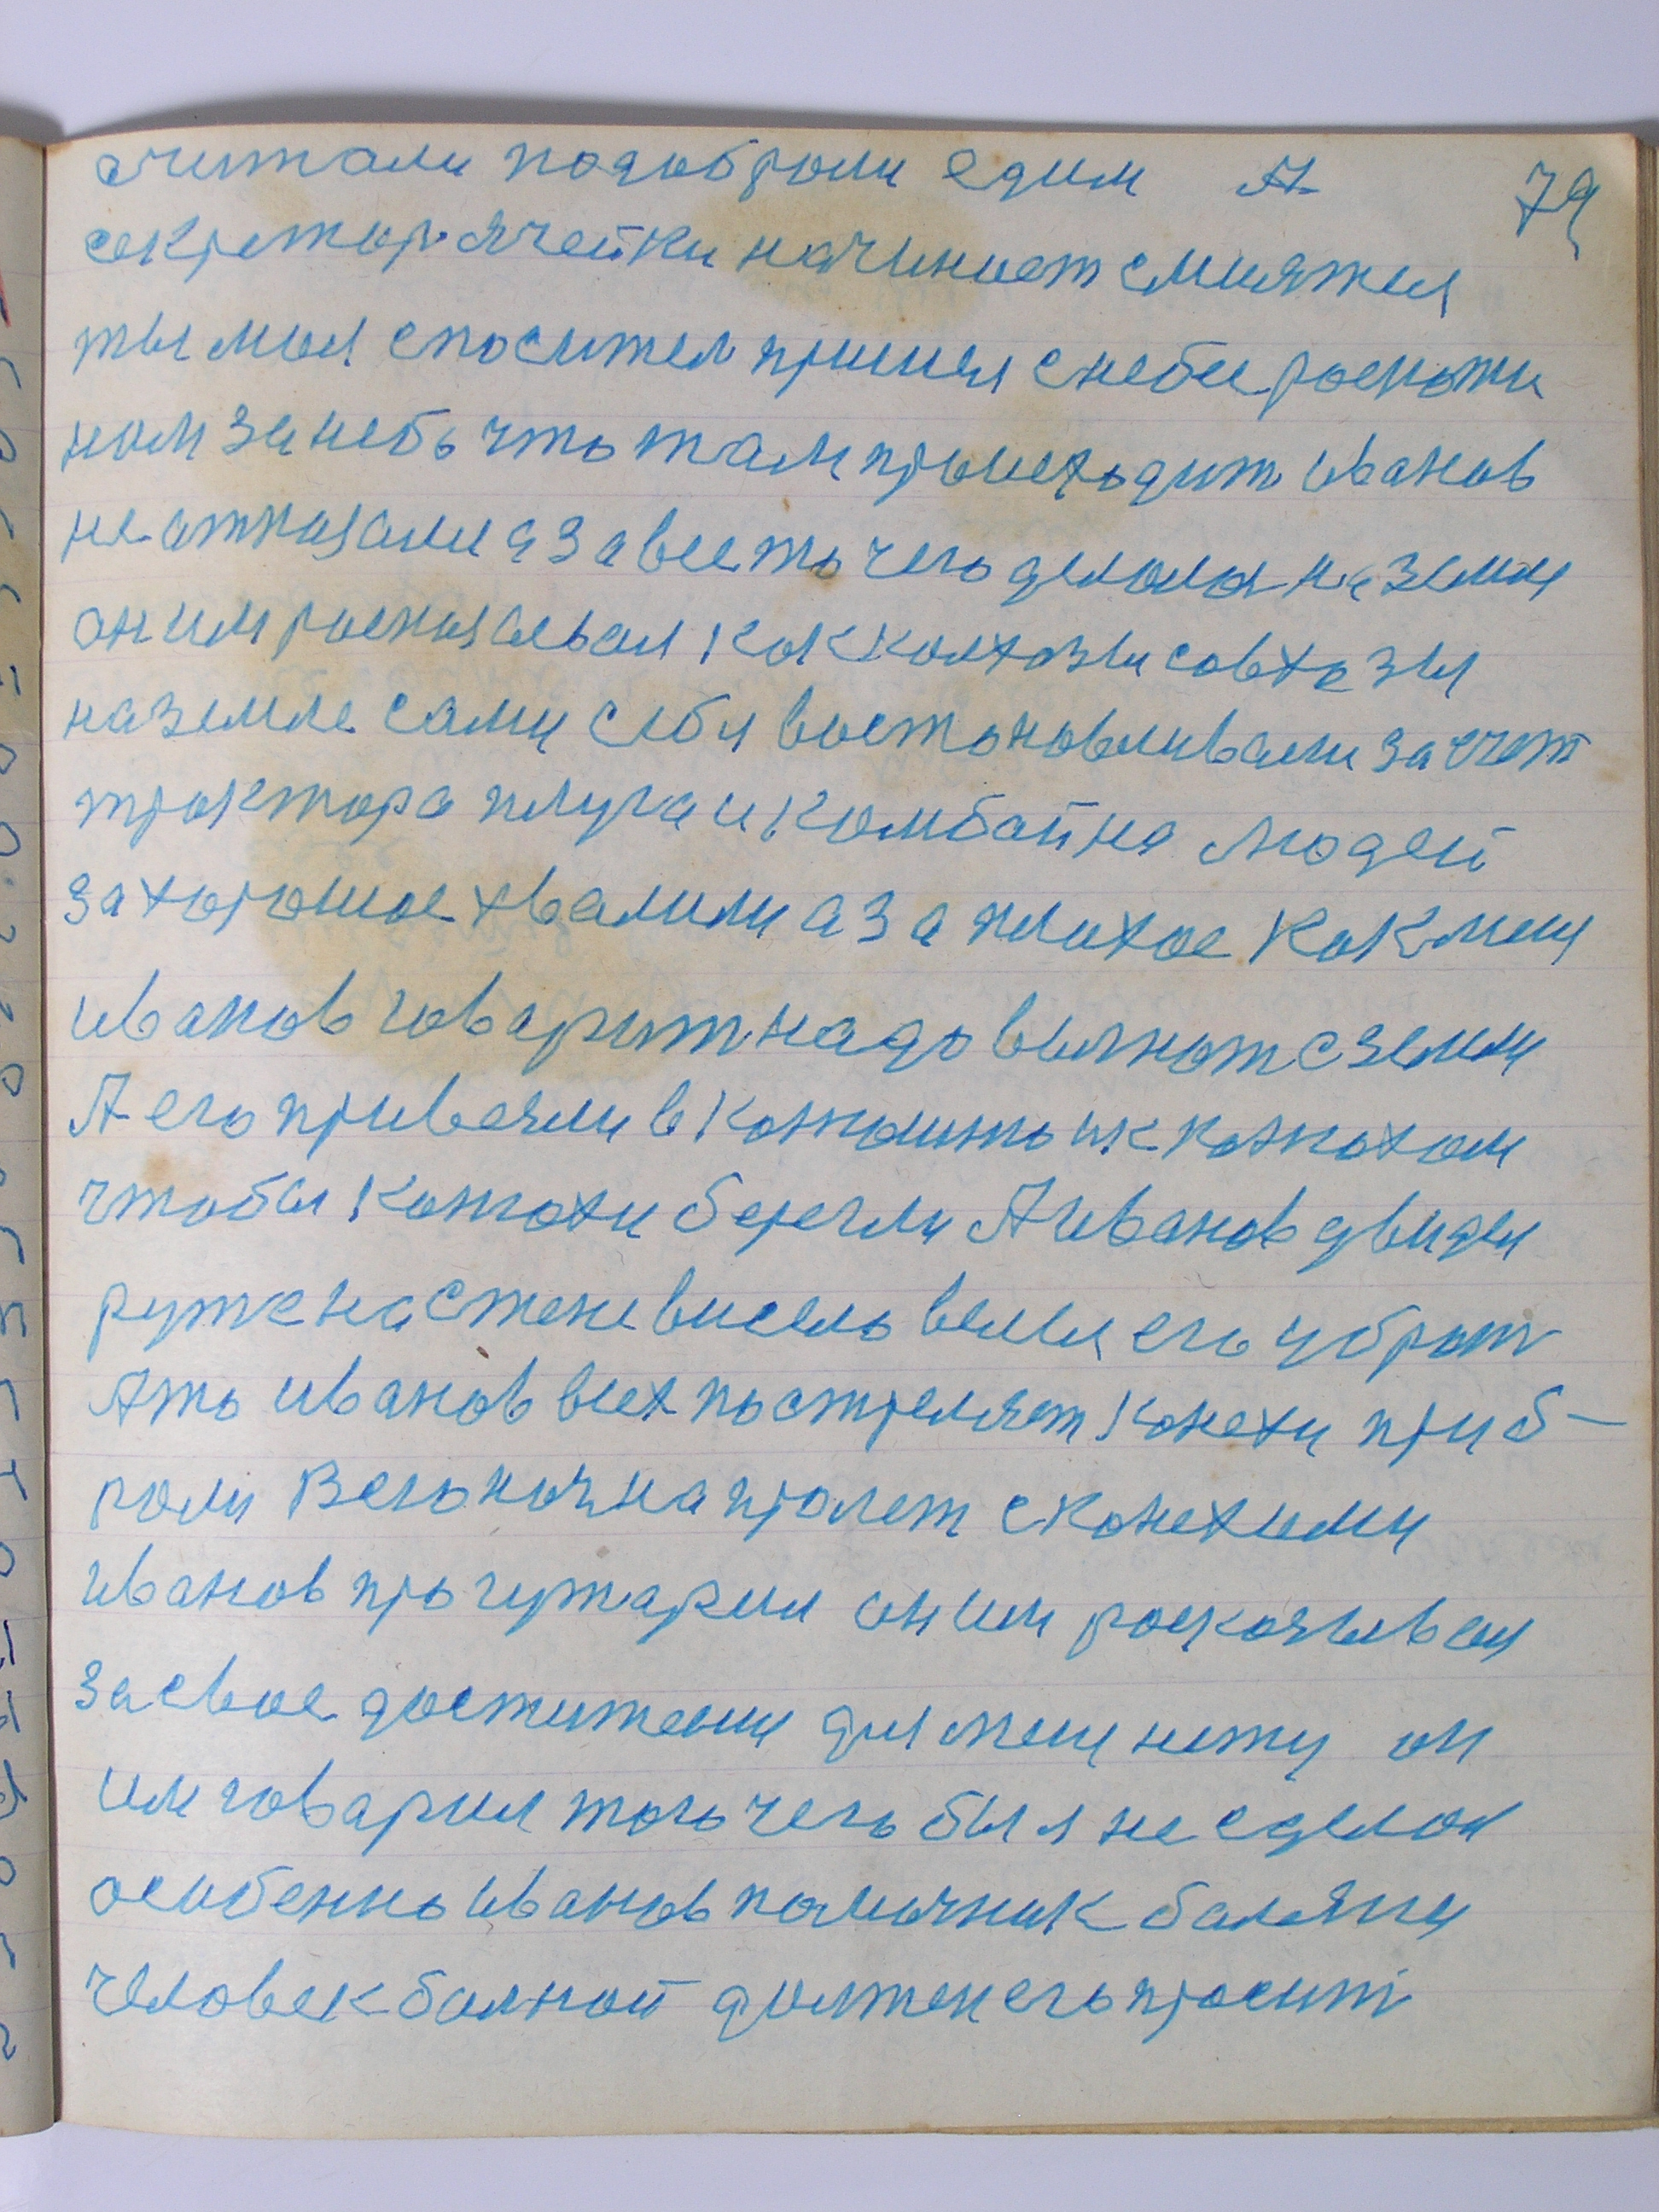 считали подоброли едим А
79
секретар ячейки начинает смиятся
ты мол спаситель пришел снеба роскажи
нам за небо что там происходит иванов
не отказался а за все то чего делалос на земли
он им росказавал как колхозы совхозы
наземле сами себя востоновливали засчет
трактора плуга и комбайна людей
захорошое хвалили а за плохое как мы
иванов говарит надо выгнат с земли
А его привезли в конюшню ик конюхам
чтобы конюхи берегли А иванов увидел
руже на стене висело велел его убрат
Ато иванов всех пострелят конехи приб-
роли Всю ноч напролет сконехими
иванов прогутарил он им росказывал
за свое достижение для меня нету он
им говарил того чего бы я не сделал
особенно иванов помочник балящи
человек балной должен его просит